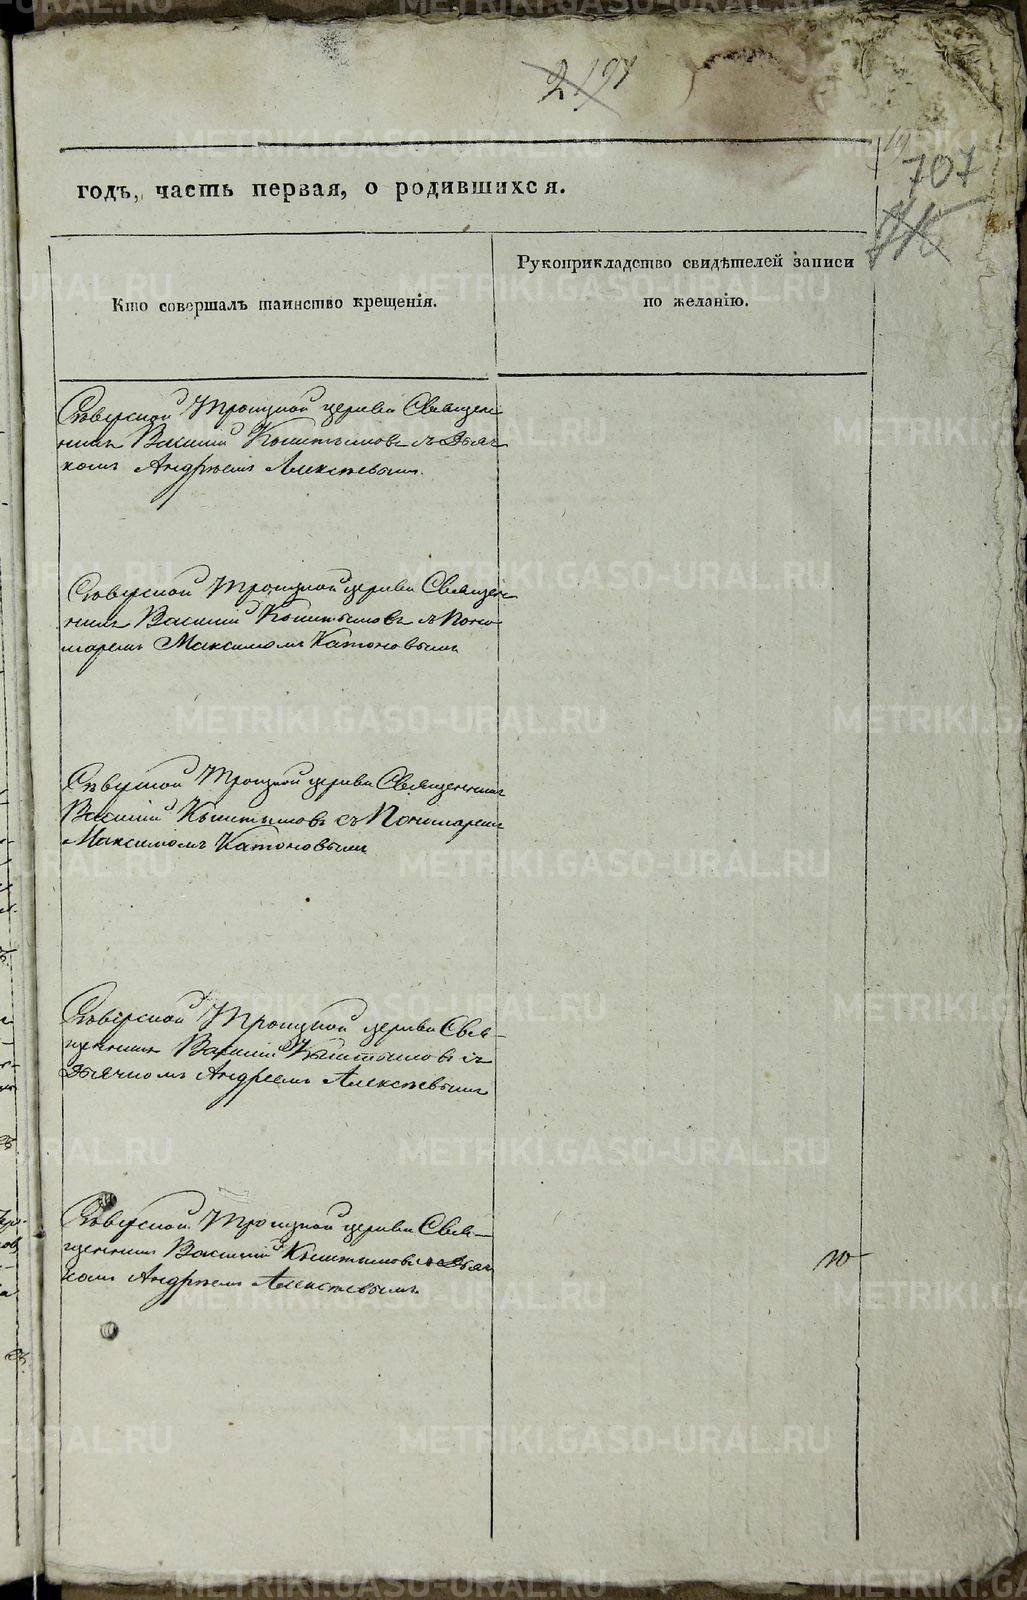 2197
19
707
годъ, часть первая, о родившихся.
Кто совершалъ таинство крещенія.
Рукоприкладство свидѣтелей записи
по желанію.
Сѣверской Троицкой церкви Священ
никъ Василій Кыштымовъ съ Дьяч
комъ Андреемъ Алексѣевымъ.
Сѣверской Троицкой церкви Священ
никъ Василій Кыштымовъ съ Поно
маремъ Максимомъ Катоновымъ
Сѣверской Троицкой церкви Священникъ
Василій Кыштымовъ съ Пономаремъ
Максимомъ Катоновымъ
Сѣверской Троицкой церкви Свя-
щенникъ Василій Кыштымовъ съ
Дьячкомъ Андреемъ Алексѣевымъ
Сѣверской Троицкой церкви Свя-
щенникъ Василій Кыштымовъ съ Дьяч
комъ Андреемъ Алексѣевымъ
METRIKI.GASO-URAL.RU